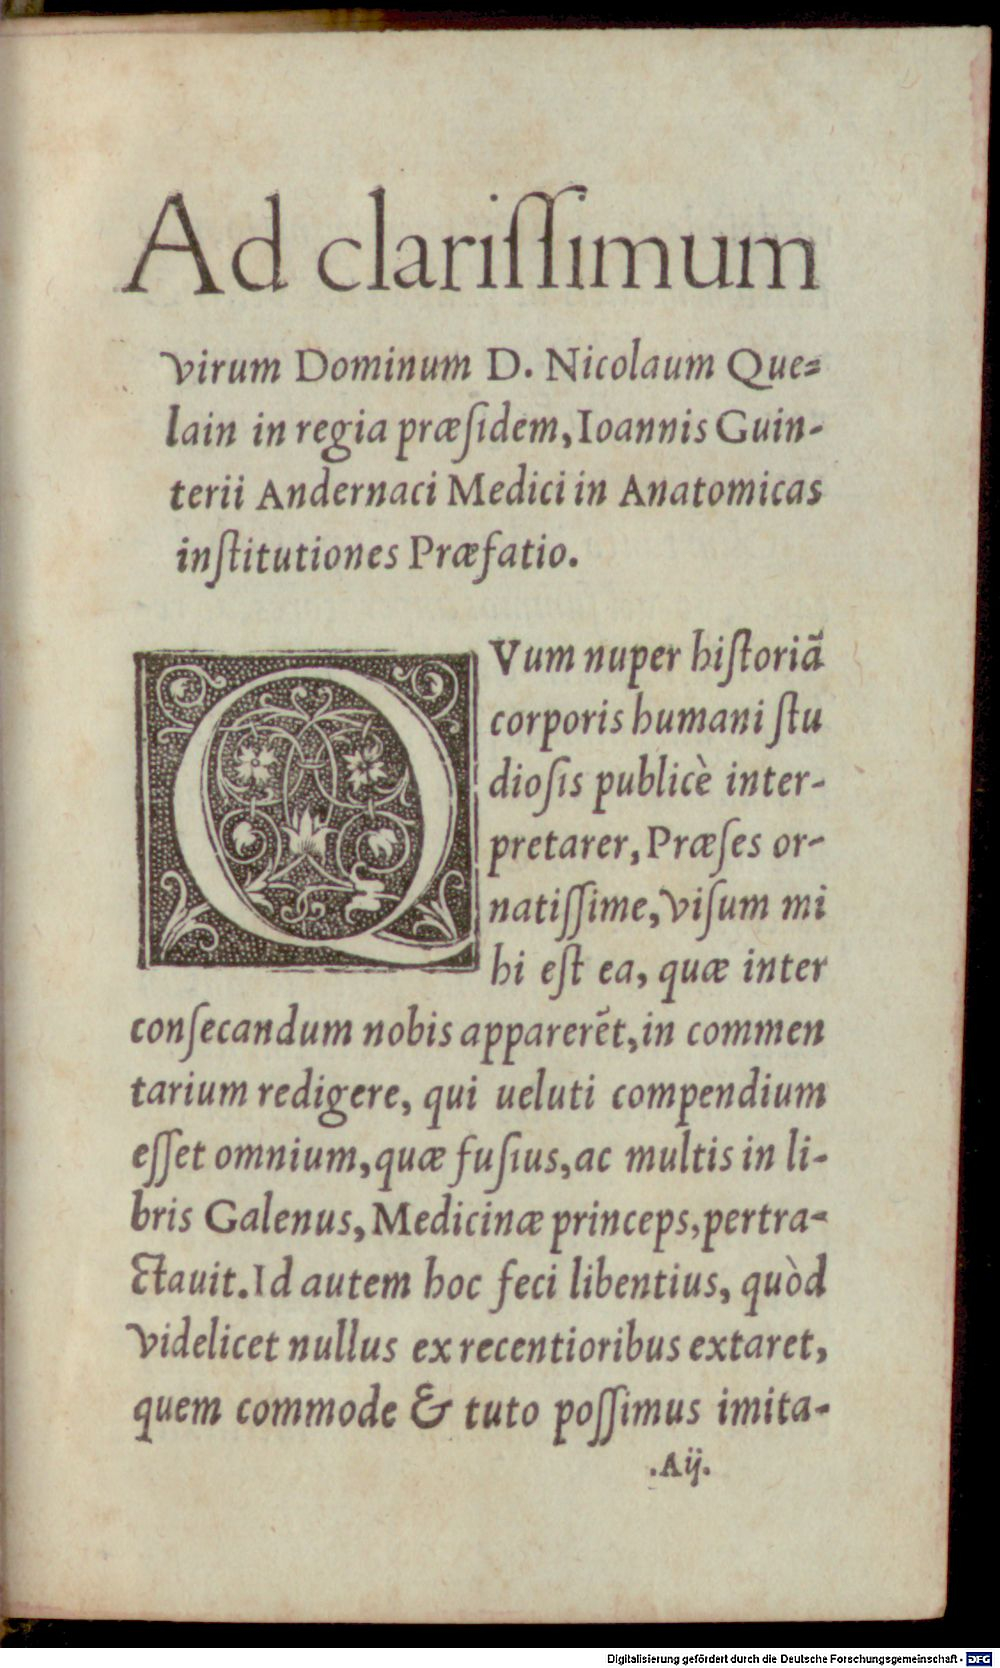 Ad clariſſimum
virum Dominum D. Nicolaum Que-
lain in regia præſidem, Ioannis Guin-
terii Andernaci Medici in Anatomicas
inſtitutiones Præfatio.
QVum nuper hiſtoriã
corporis humani ſtu
dioſis publicè inter-
pretarer, Præſes or-
natiſſime, viſum mi
hi eſt ea, quæ inter
conſecandum nobis apparerẽt, in commen
tarium redigere, qui ueluti compendium
eſſet omnium, quæ fuſius, ac multis in li-
bris Galenus, Medicinæ princeps, pertra-
ctauit. Id autem hoc feci libentius, quòd
videlicet nullus ex recentioribus extaret,
quem commode & tuto poſſimus imita-
.Aij.
Digitalisierung gefördert durch die Deutsche Forschungsgemeinschaft - DFG